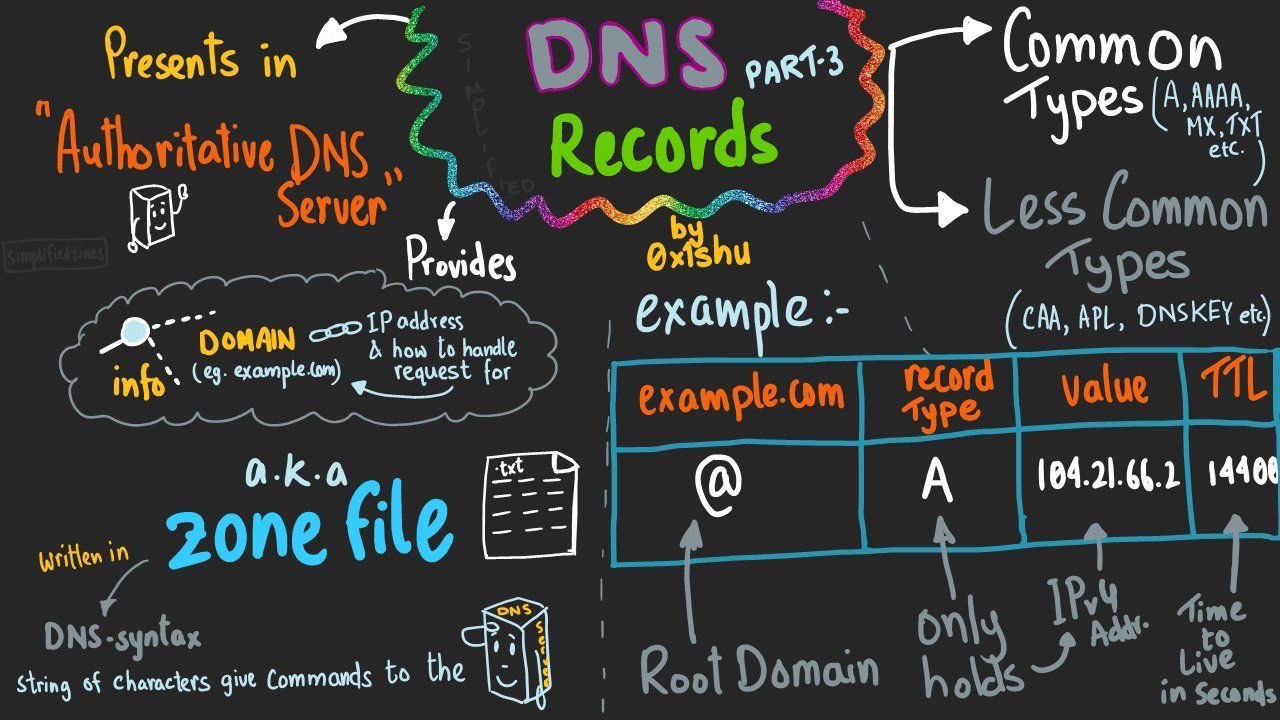 DNS
PART-3
Records
by
0x1shu
SIMPLIFIED
simplifiedzines
Presents in
"Authoritative DNS
Server"
Provides
info
DOMAIN
(eg. example.com)
IP address
& how to handle
request for
a.k.a
zone file
.txt
written in
DNS-syntax
string of characters give commands to the
DNS
Server
Common
Types (A, AAAA,
MX, TXT
etc. )
Less Common
Types
(CAA, APL, DNSKEY etc.)
example :-
example.com record Type value TTL
@ A 104.21.66.2 14400
Root Domain
only
holds
IPv4
Addr.
Time
to
Live
in Seconds